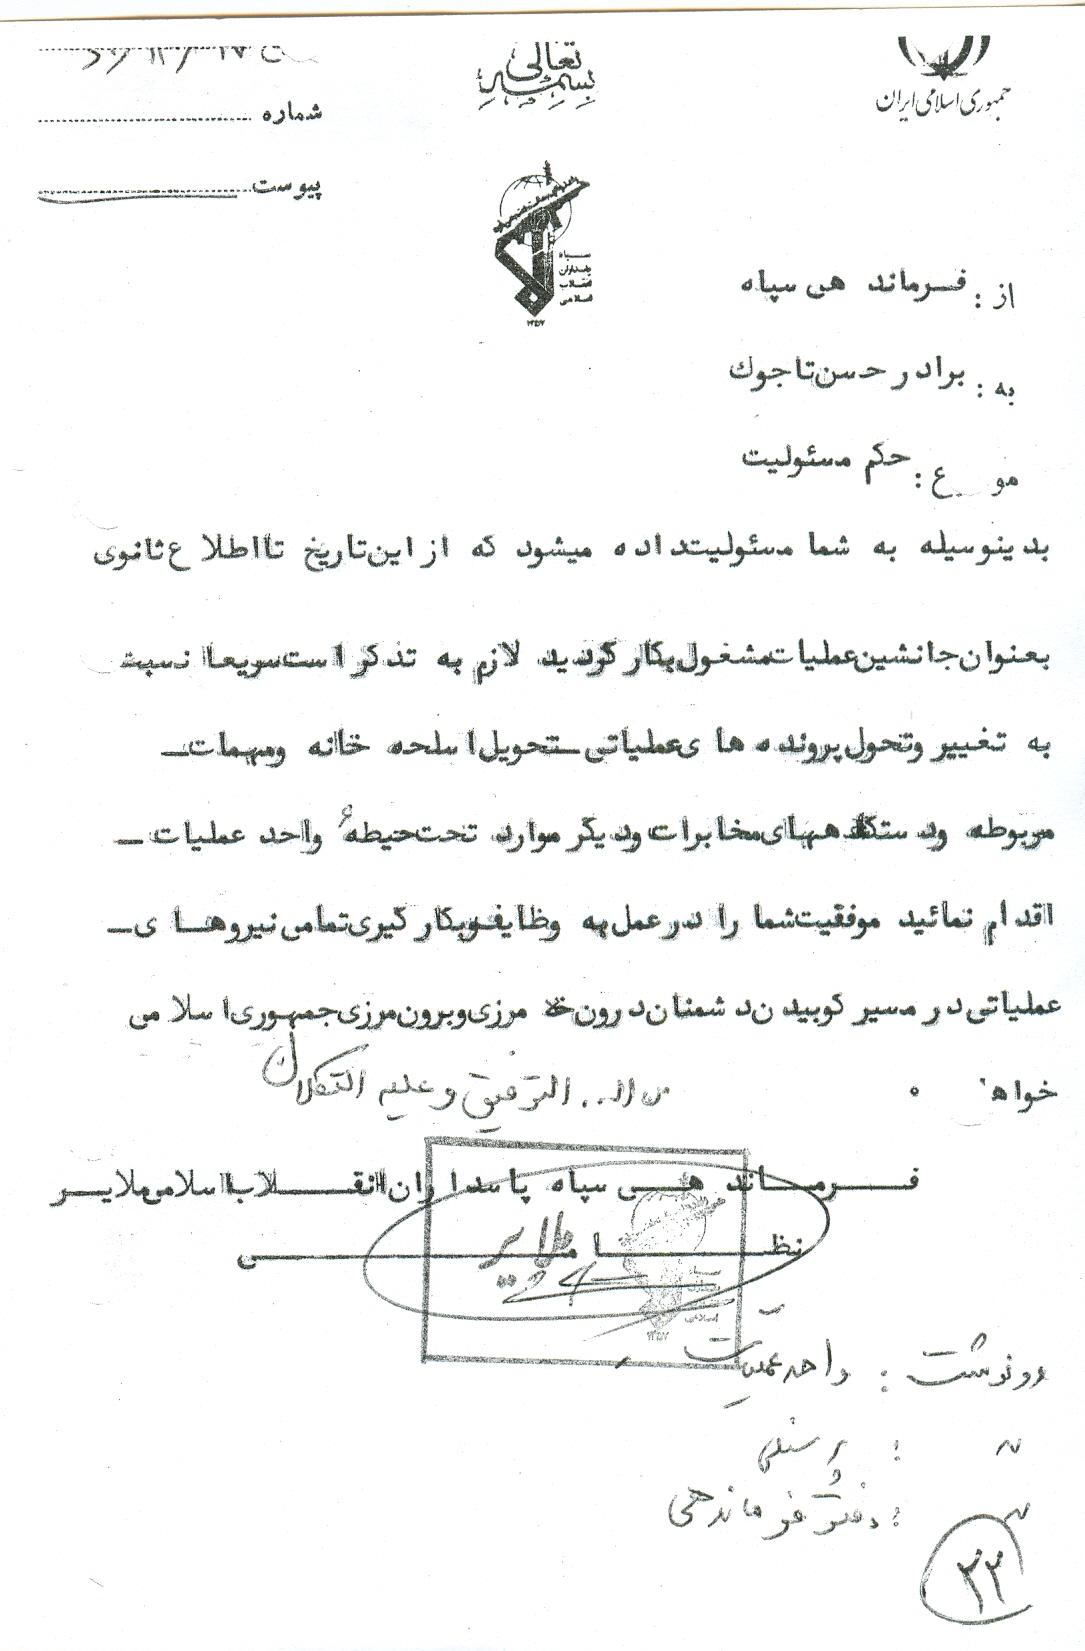 بسمه تعالی
جمهوری اسلامی ایران
شماره
پیوست
سپاه
پاسداران
انقلاب
اسلامی
از : فـرماند هی سپاه
به : براد ر حسن تاجوک
حکم مسئولیت
بد ینوسیله به شما مسئولیتداد ه میشود که از این تاریخ تااطلا ع ثانوی
بعنوان جانشین عملیات مشغول بکار گردید لازم به تذکر است سریعا نسبت
به تغییر وتحول پرونده ها ی عملیاتی ــ تحویل اسلحه خانه ومهمات ــ
مربوطه ود ستگاههای مخابرات ود یگر موارد تحت حیطهٔ واحد عملیات ــ
اقدام نمائید موفقیت شما را در عمل به وظایف وبکار گیری تمامی نیروهـا ی ــ
عملیاتی د ر مسیر کوبید ن د شمنان د رون مرزی وبرون مرزی جمهوری اسلا می
التوفیق و علیه التکلان
فــرمــاند هــی سپاه پاسد ا ران انقــلاب اسلامی ملایــر
نظــامــی
ملایر
رونوشت : واحد عملیات
" : پرسنلی
" : دفتر فرماندهی
۲۲